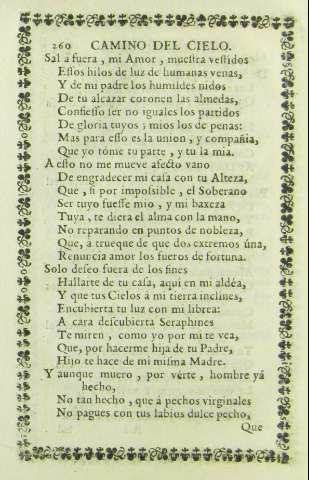 260 CAMINO DEL CIELO.
Sal á fuera, mi Amor, muestra vestidos
Essos hilos de luz de humanas venas,
Y de mi padre los humildes nidos
De tu alcazar coronen las almedas,
Confiesso ser no iguales los partidos
De gloria tuyos; mios los de penas:
Mas para esso es la union, y compañia,
Que yo tóme tu parte, y tu la mia.
A esto no me mueve afecto vano
De engradecer mi casa con tu Alteza,
Que, si por impossible, el Soberano
Ser tuyo fuesse mio, y mi baxeza
Tuya, te diera el alma con la mano,
No reparando en puntos de nobleza,
Que, á trueque de que dos extremos úna,
Renuncia amor los fueros de fortuna.
Solo deseo fuera de los fines
Hallarte de tu casa, aqui en mi aldéa,
Y que tus Cielos á mi tierra inclines,
Encubierta tu luz con mi librea:
A cara descubierta Seraphines
Te miren, como yo por mi te vea,
Que, por hacerme hija de tu Padre,
Hijo te hace de mi misma Madre.
Y aunque muero, por vérte, hombre yá
hecho,
No tan hecho, que á pechos virginales
No pagues con tus labios dulce pecho,
Que